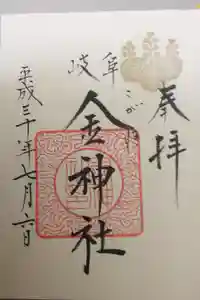 奉拝
岐阜
こがね
金神社
平成三十年七月六日